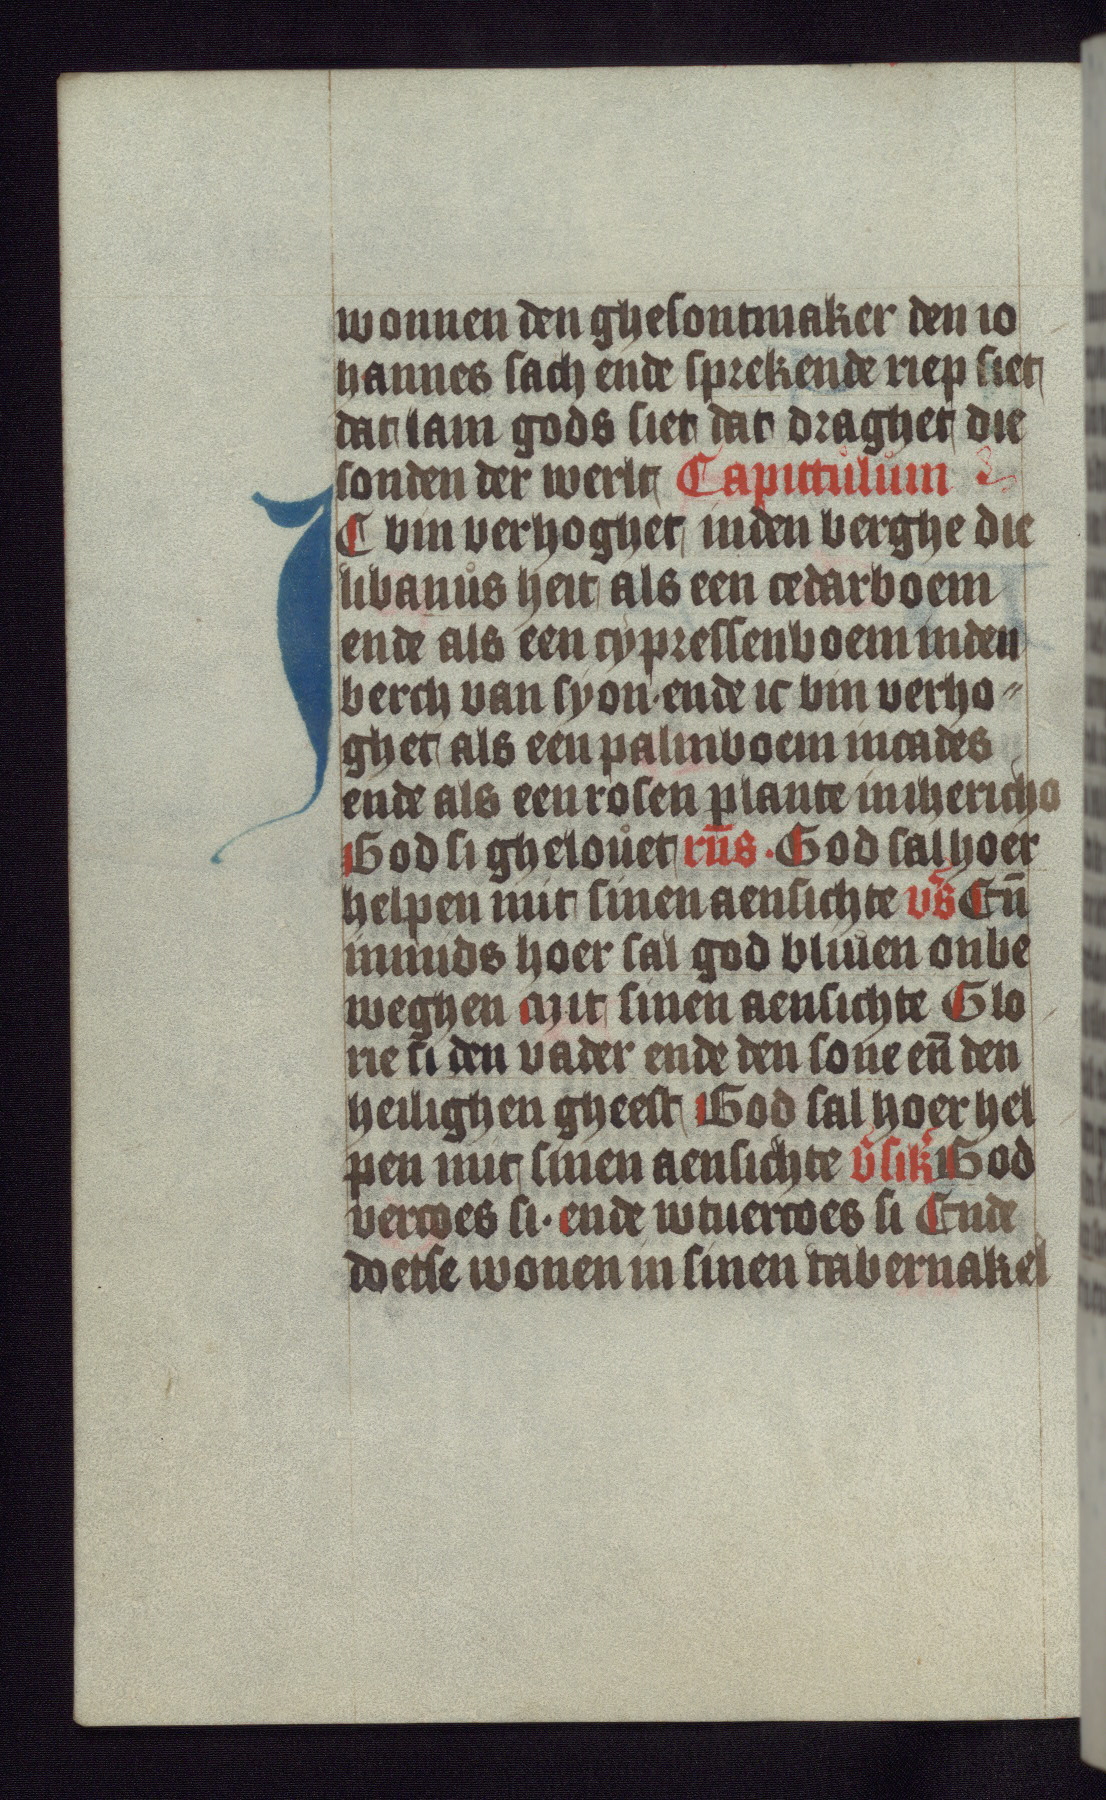 wonnen den ghesontmaker den io
hannes sach ende sprekende riep siet
dat lam gods siet dat draghet die
sonden der werlt Capittulum
IC bin verhoghet inden berghe die
libanus heit als een cedarboem
ende als een cypressenboem inden
berch van syon·ende ic bin verho〃
ghet als een palmboem incades
ende als een rosen plante in ihericho
God si ghelouet rūs·God sal hoer
helpen mit sinen aensichte v̄s Eñ
inmids hoer sal god bliuen onbe
weghen mit sinen aensichte Glo
rie si den vader ende den sone eñ den
heilighen gheest God sal hoer hel
pen mit sinen aensichte v̄sik̄ God
vercoes si·ende wtuercoes si Ende
doetse wonen in sinen tabernakel